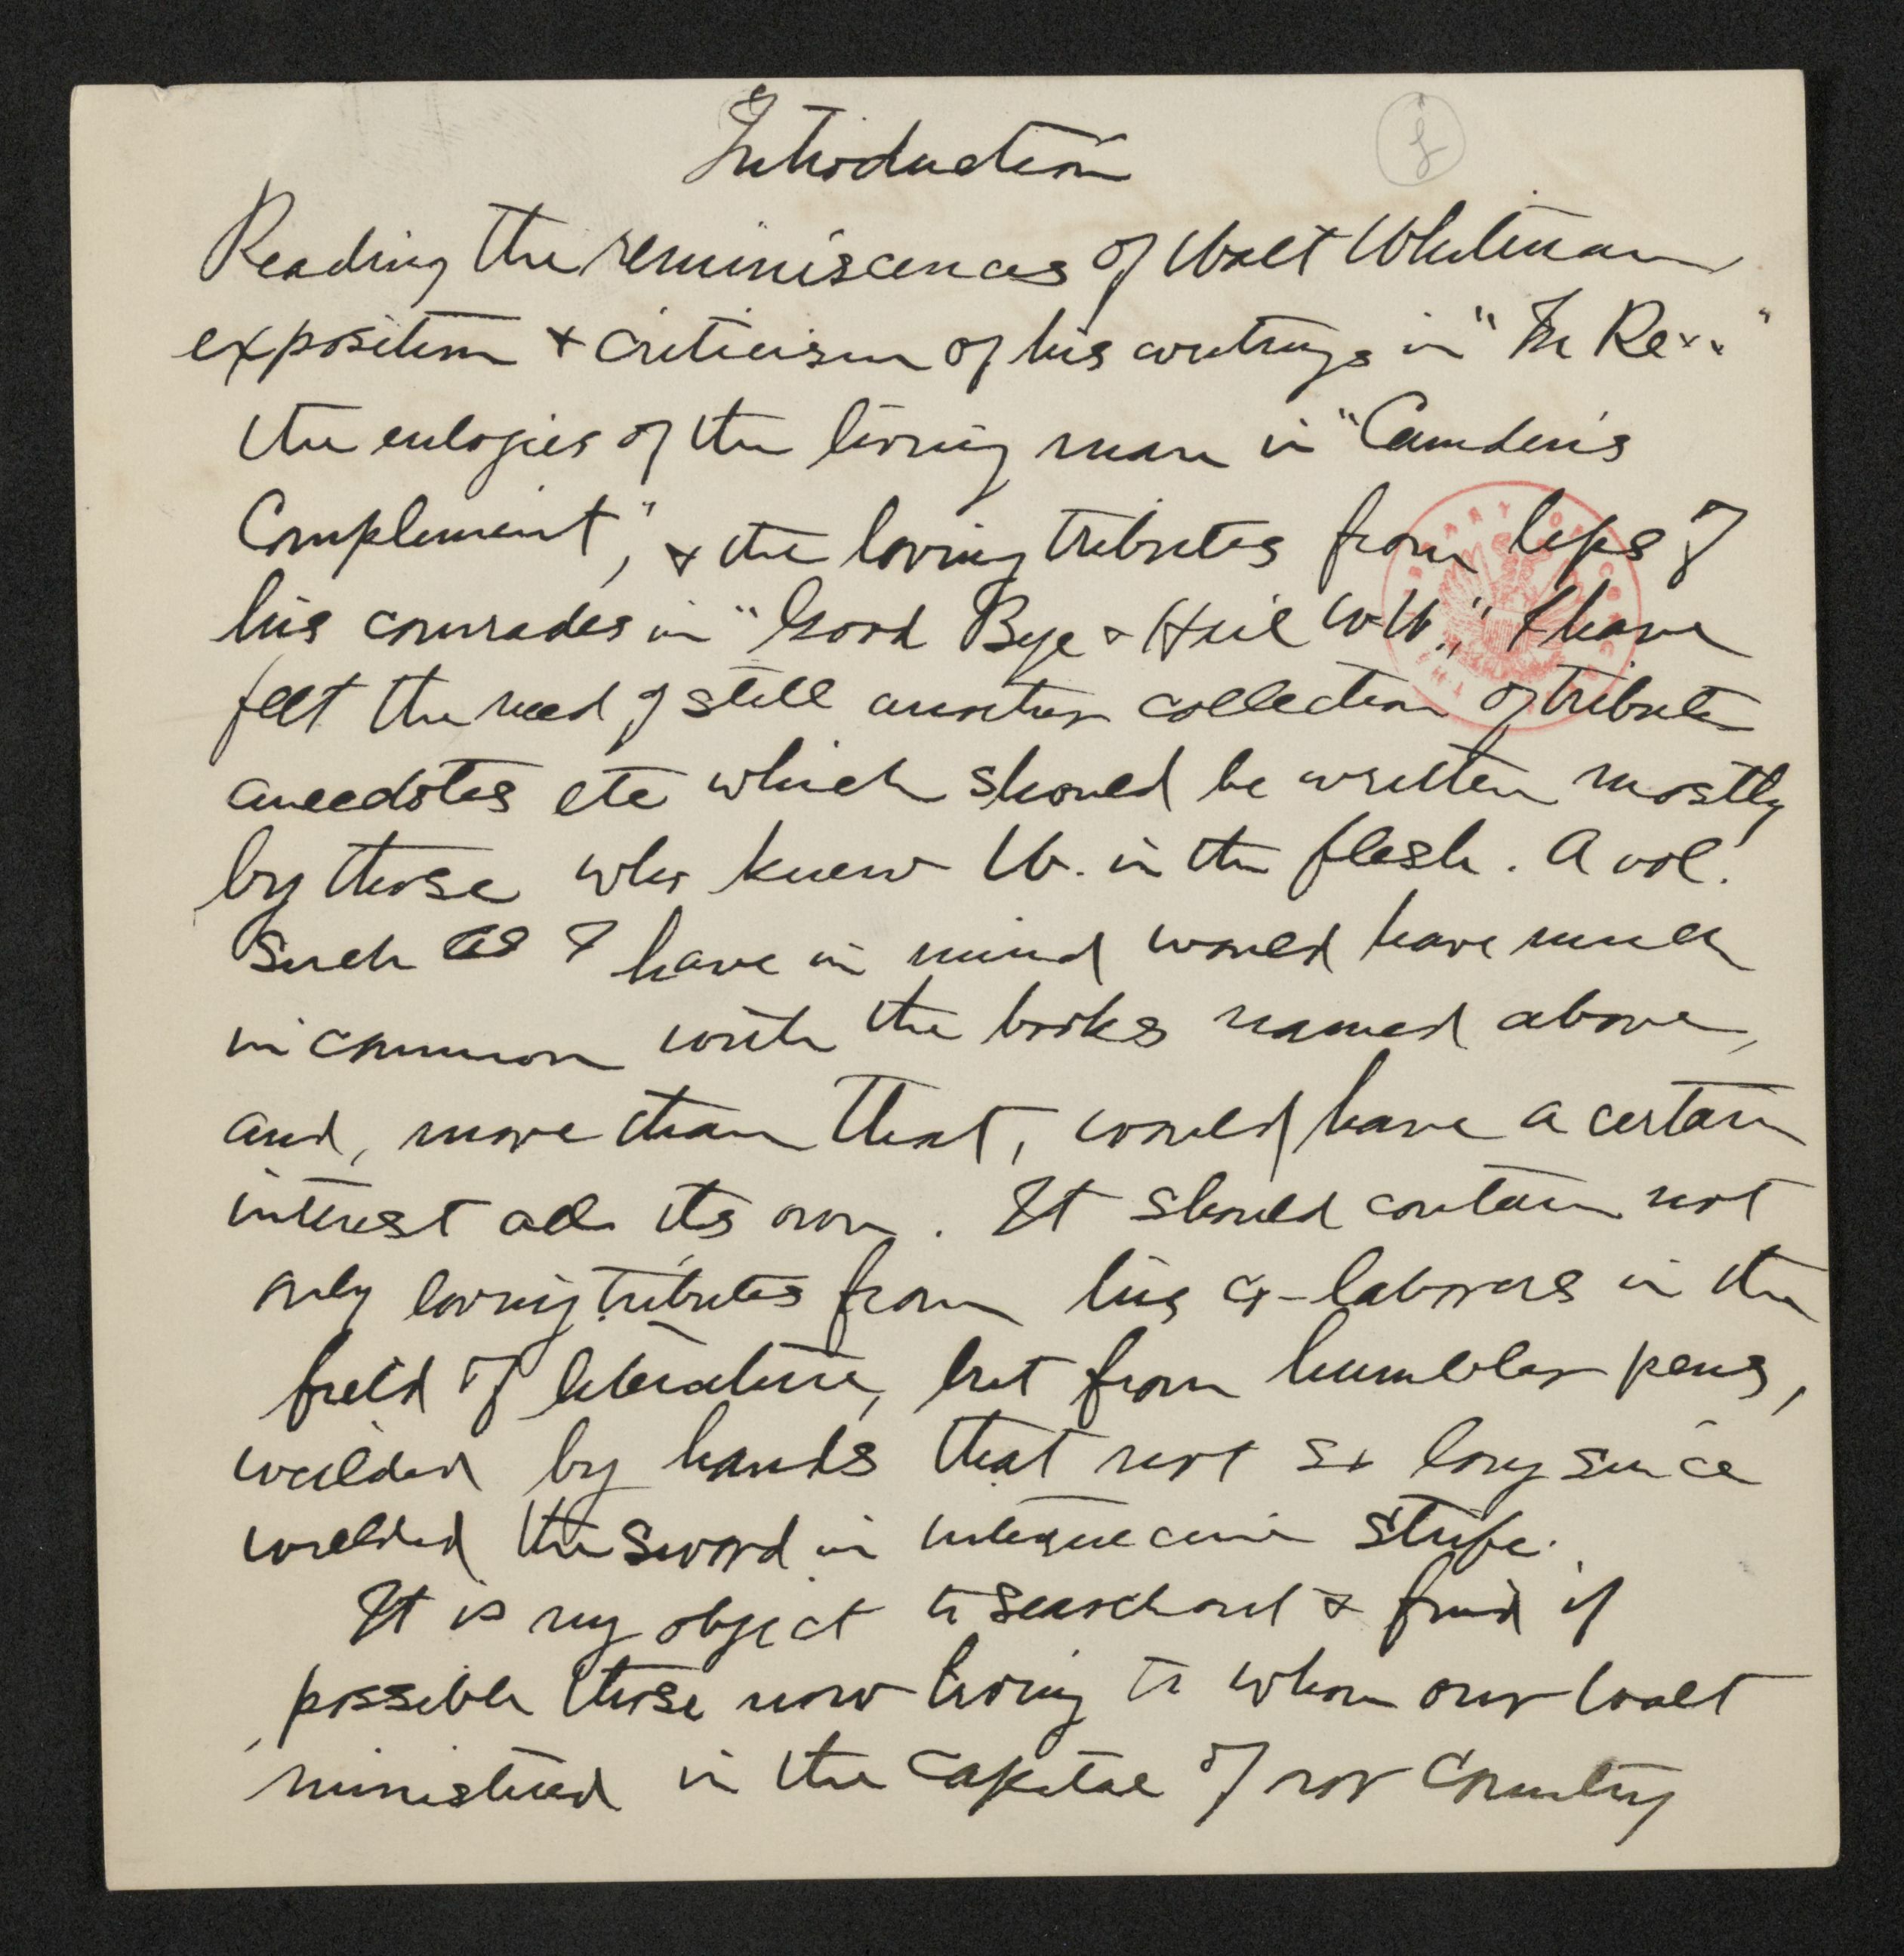 Introduction
Reading the reminiscences of Walt Whitman
exposition & criticism of his writings in "In Re..."
the eulogies of the living man in "Camden's
Complement", & the loving tributes from lips of
his comrades in "Good Bye & Hail W W.," I have
felt the need of still another collection of tribute
anecdotes etc which should be written mostly
by those who knew W. in the flesh. A vol.
Such as I have in mind would have much
in common with the books named above,
and, more than that, would have a certain
interest all its own. It should contain not
only loving tributes from his co-laborers in the
field of literature, but from humbler pens,
wielded by hands that not so long since
wielded the sword in internecine strife.
It is my object to search out & find if
possible those now living to whom our Walt
ministered in the Capital of our Country
LIBRARY OF CONGRESS